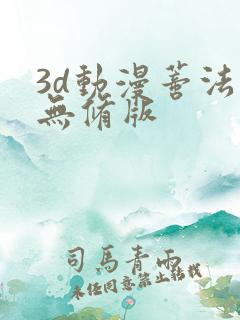 3d動漫蓄法
無脩版
司馬青雨
未经同意禁止转载